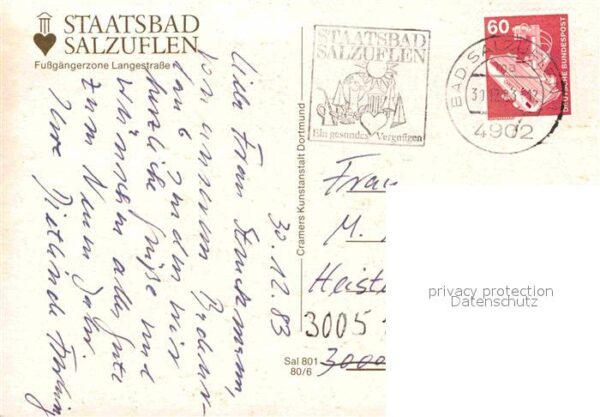 STAATSBAD
SALZUFLEN
Fußgängerzone Langestraße
30.12.83
Liebe Frau
von unserem
senden wir
herzliche Grüße und
wünschen alles Gute
zum Neuen Jahr.
Ihre Dietlinde
Cramers Kunstanstalt Dortmund
Sal 801
80/6
STAATSBAD
SALZUFLEN
Ein gesundes Vergnügen
BAD SALZUFLEN
4902
60
DEUTSCHE BUNDESPOST
Frau
M.
Heiste
3005
3000
privacy protection
Datenschutz